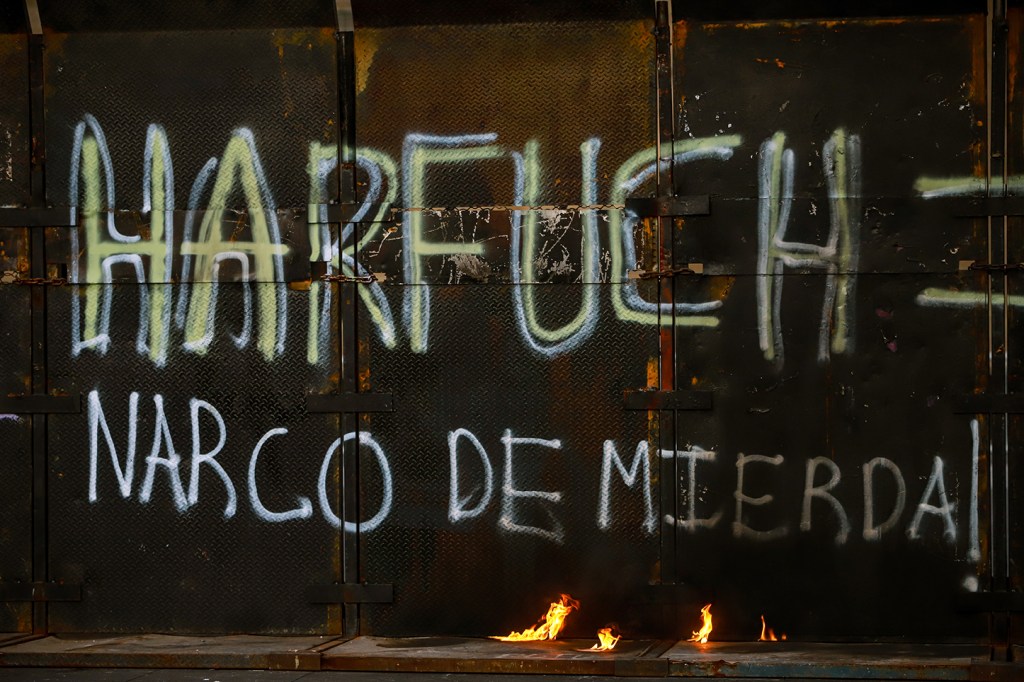 HARFUCH =
NARCO DE MIERDA!